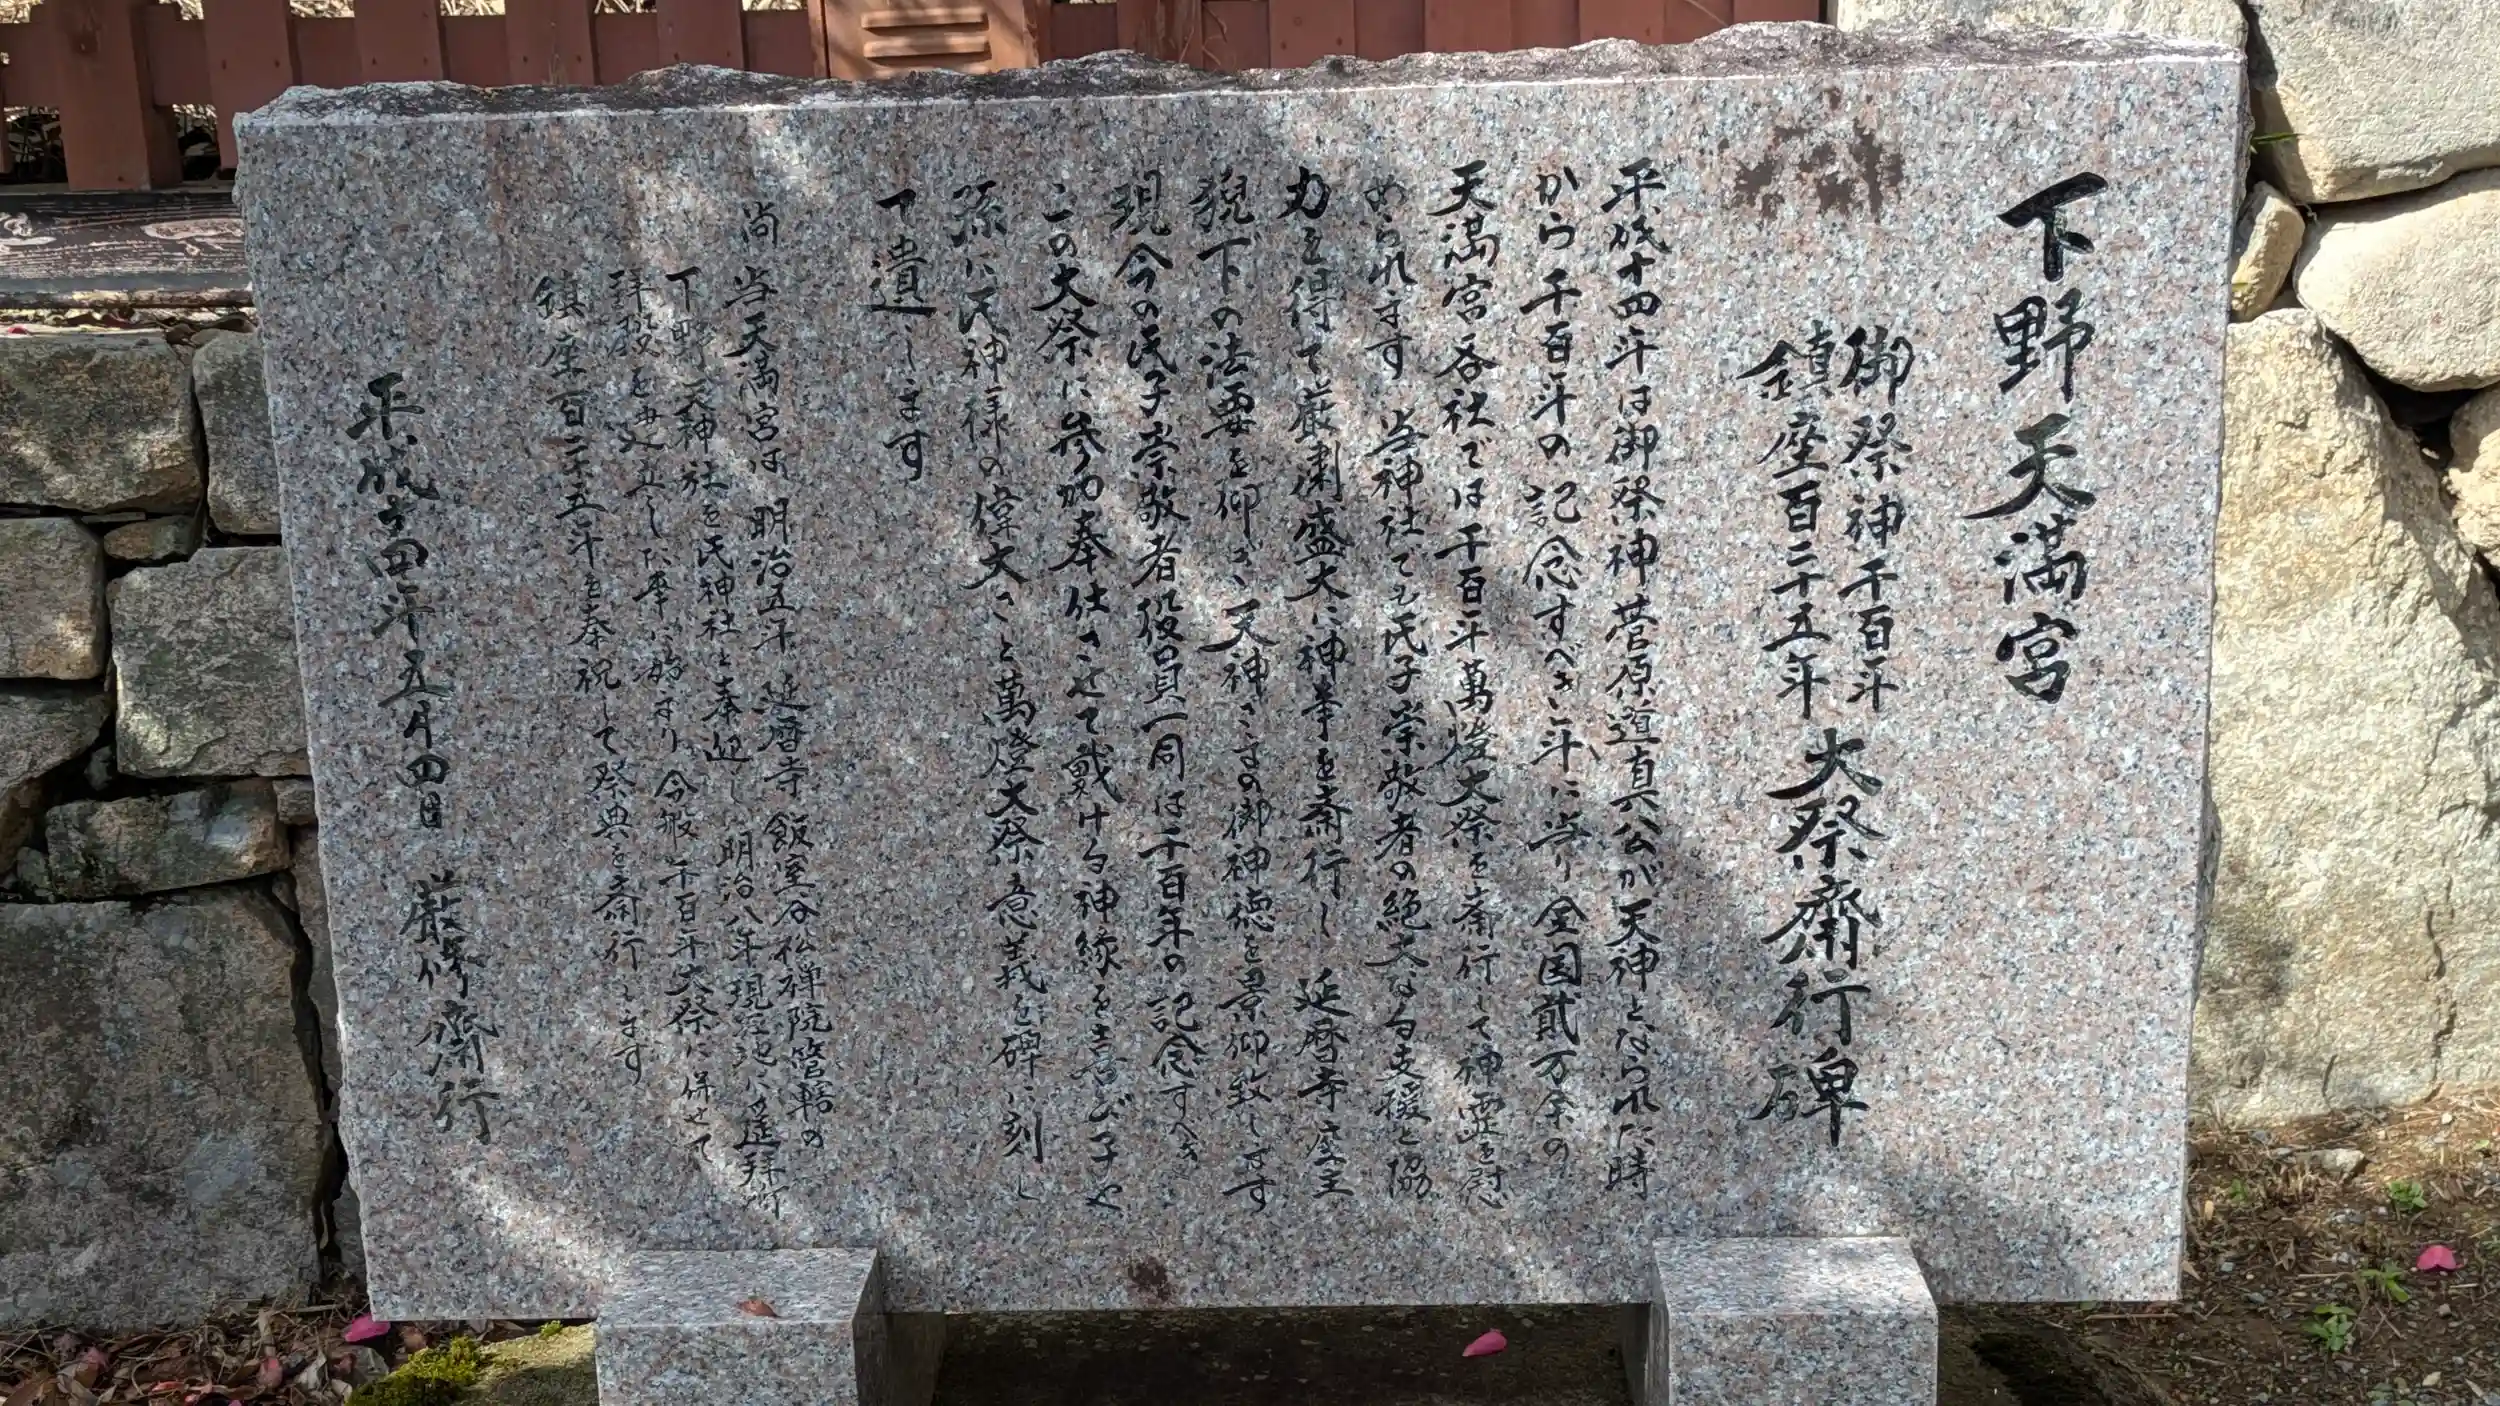 下野天満宮
御祭神千百年
鎮座百二十五年 大祭齋行碑
平成十四年は御祭神菅原道真公が天神となられた時
から千百年の記念すべき年に当り全国貳万余の
天満宮各社では千百年萬燈大祭を斎行して神霊を慰
められます 当神社でも氏子崇敬者の絶大なる支援と協
力を得て厳粛盛大に神事を斎行し 延暦寺座主
猊下の法要を仰ぎ 天神さまの御神徳を景仰致します
現今の氏子崇敬者役員一同は千百年の記念すべき
この大祭に参加奉仕させて戴ける神縁を喜び子や
孫に氏神様の偉大さと萬燈大祭意義を碑に刻し
て遺します
尚 当天満宮は 明治五年 延暦寺 飯室谷仏禅院管轄の
下野天神社を氏神社と奉迎し 明治八年現境地に遥拝所
拝殿を建立した事に始まり 今般千百年大祭に併せて
鎮座百二十五年を奉祝して祭典を斎行します
平成十四年五月四日 厳修齋行